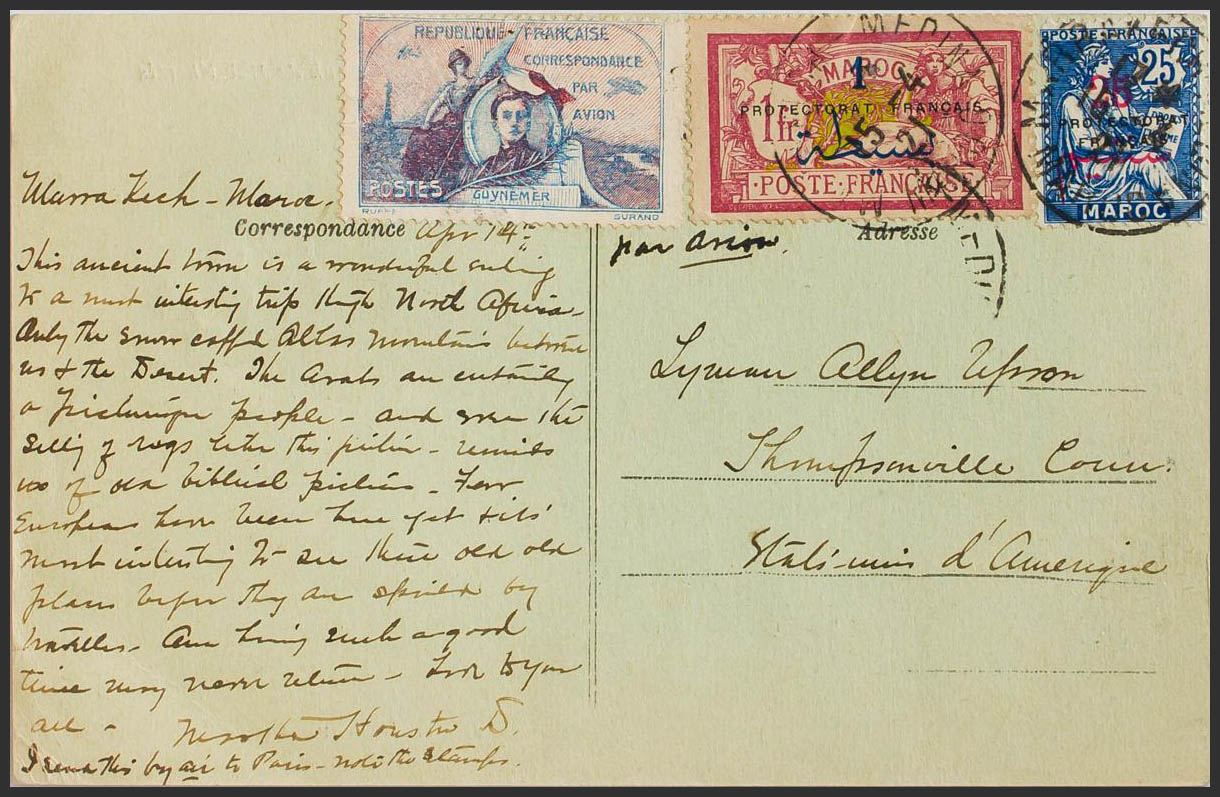 REPUBLIQUE FRANÇAISE
CORRESPONDANCE
PAR
AVION
POSTES
GUYNEMER
RUFFE
GURAND
MAROC
1
PROTECTORAT FRANÇAIS
1 fr
POSTE FRANÇAISE
MEDINA
POSTE FRANÇAISE
25
PROTECTORAT
FRANÇAIS
MAROC
Marra Kech - Maroc.
Correspondance Apr 14th
This ancient town is a wonderful ending
to a most interestig trip through North Africa -
Only the snow capped Atlas mountains between
us & the Desert. The Arabs are certainly
a picturesque people - and even the
sellig of rugs like this picture - reminds
us of old biblical pictures - Few
Europeans have been here yet & its'
most interesting to see these old old
places before they are spoiled by
travellers. Am having such a good
time may never return - Love to you
all - Martha Houston D.
I send this by air to Paris - note the stamps.
Adresse
par avion.
Lyman Allyn Upson
Thompsonville Conn.
Etats-unis d'Amerique